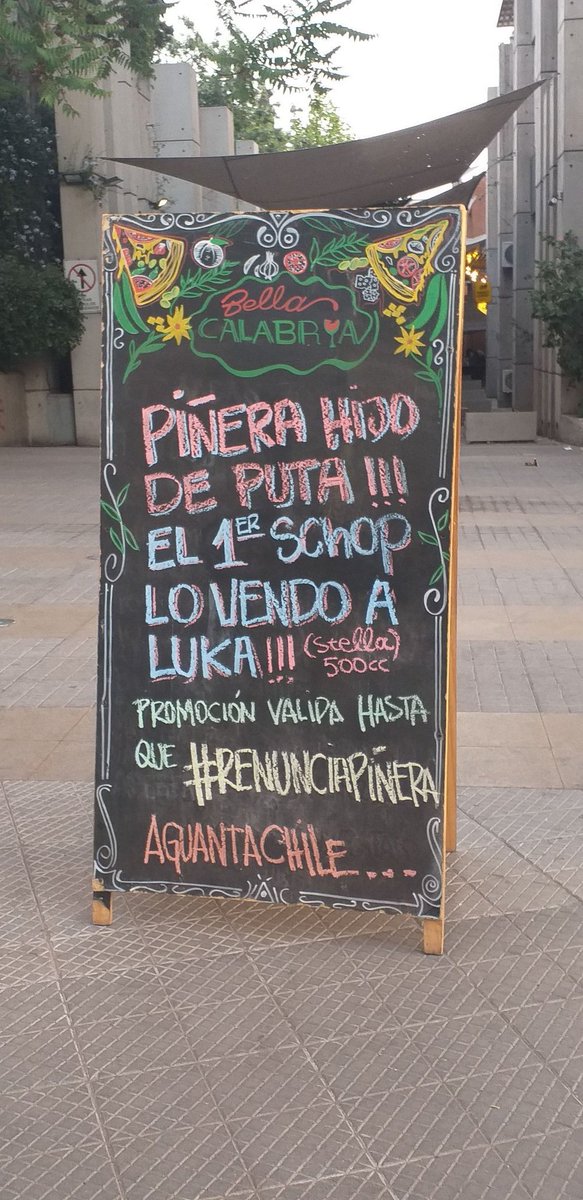 Bella
CALABRIA
PIÑERA HIJO
DE PUTA!!!
EL 1ER SCHOP
LO VENDO A
LUKA!!! (Stella)
500cc
PROMOCIÓN VALIDA HASTA
QUE #RENUNCIAPIÑERA
AGUANTACHILE...